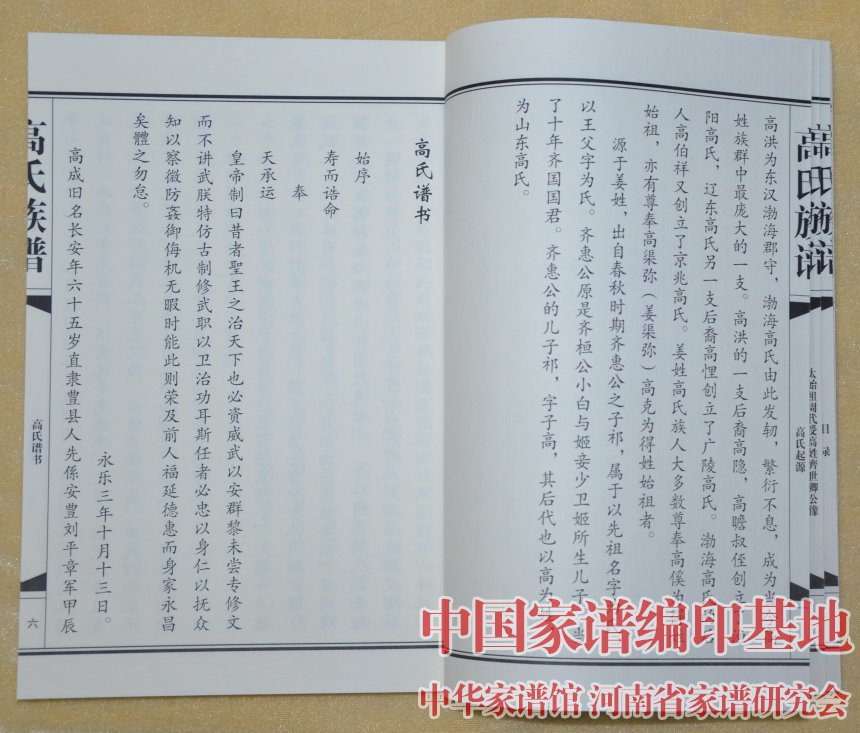 高洪为东汉渤海郡守，渤海高氏由此发轫，繁衍不息，成为
姓族群中最庞大的一支。高洪的一支后裔高隐，高瞻叔侄创立
阳高氏，辽东高氏另一支后裔高悝创立了广陵高氏。渤海高氏
人高伯祥又创立了京兆高氏。姜姓高氏族人大多数尊奉高傒为
始祖，亦有尊奉高渠弥（姜渠弥）高克为得姓始祖者。
源于姜姓，出自春秋时期齐惠公之子祁，属于以先祖名字
以王父字为氏。齐惠公原是齐桓公小白与姬妾少卫姬所生儿子
了十年齐国国君。齐惠公的儿子祁，字子高，其后代也以高为
为山东高氏。
高氏谱书
始序
寿而诰命
奉
天承运
皇帝制曰昔者聖王之治天下也必资威武以安群黎未尝专修文
而不讲武朕特仿古制修武职以卫治功耳斯任者必忠以身仁以抚众
知以察微防姦御侮机无暇时能此则荣及前人福延德惠而身家永昌
矣體之勿怠。
永乐三年十月十三日。
高成旧名长安年六十五岁直隶豊县人先係安豊刘平章军甲辰
高氏族谱
高氏谱书
六
高氏族谱
高氏起源
太始祖周代受高姓齊世卿公像
目录
中国家谱编印基地
中华家谱馆 河南省家谱研究会